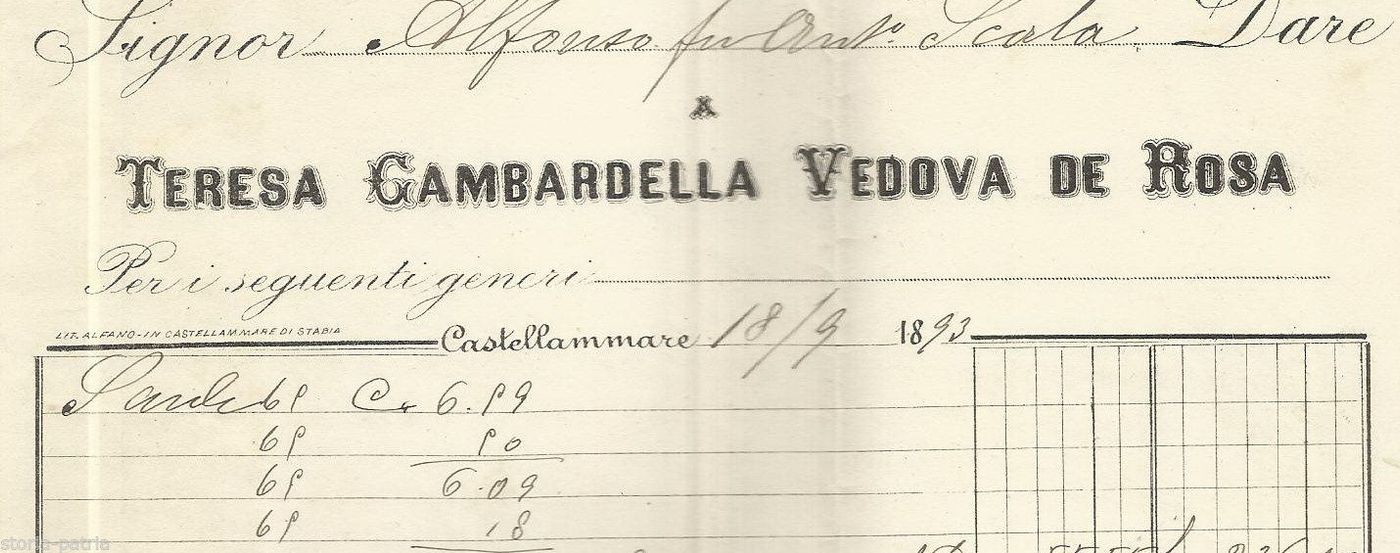 Signor Alfonso fu Ant.o Scala Dare
A
TERESA GAMBARDELLA VEDOVA DE ROSA
Per i seguenti generi
LIT. ALFANO - IN CASTELLAMMARE DI STABIA
Castellammare 18/9 1893
69 C. 6.59
69 50
69 6.09
69 18
storia-patria